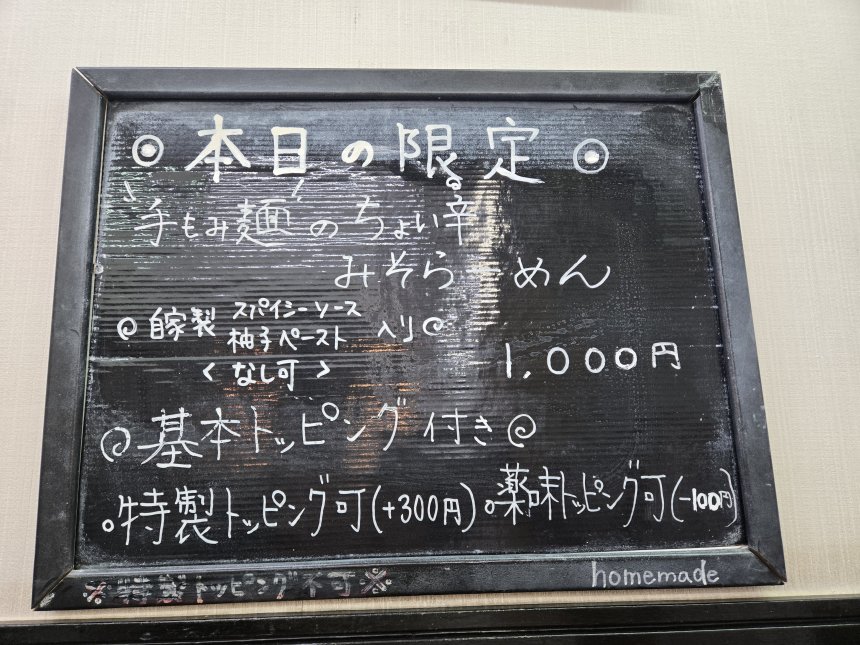 ◎本日の限定◎
手もみ麺のちょい辛
みそらーめん
自家製 スパイシーソース
柚子ペースト 入り
＜なし可＞
1,000円
基本トッピング付き
特製トッピング可(+300円)
薬味トッピング可(-100円)
※特製トッピング不可※
homemade